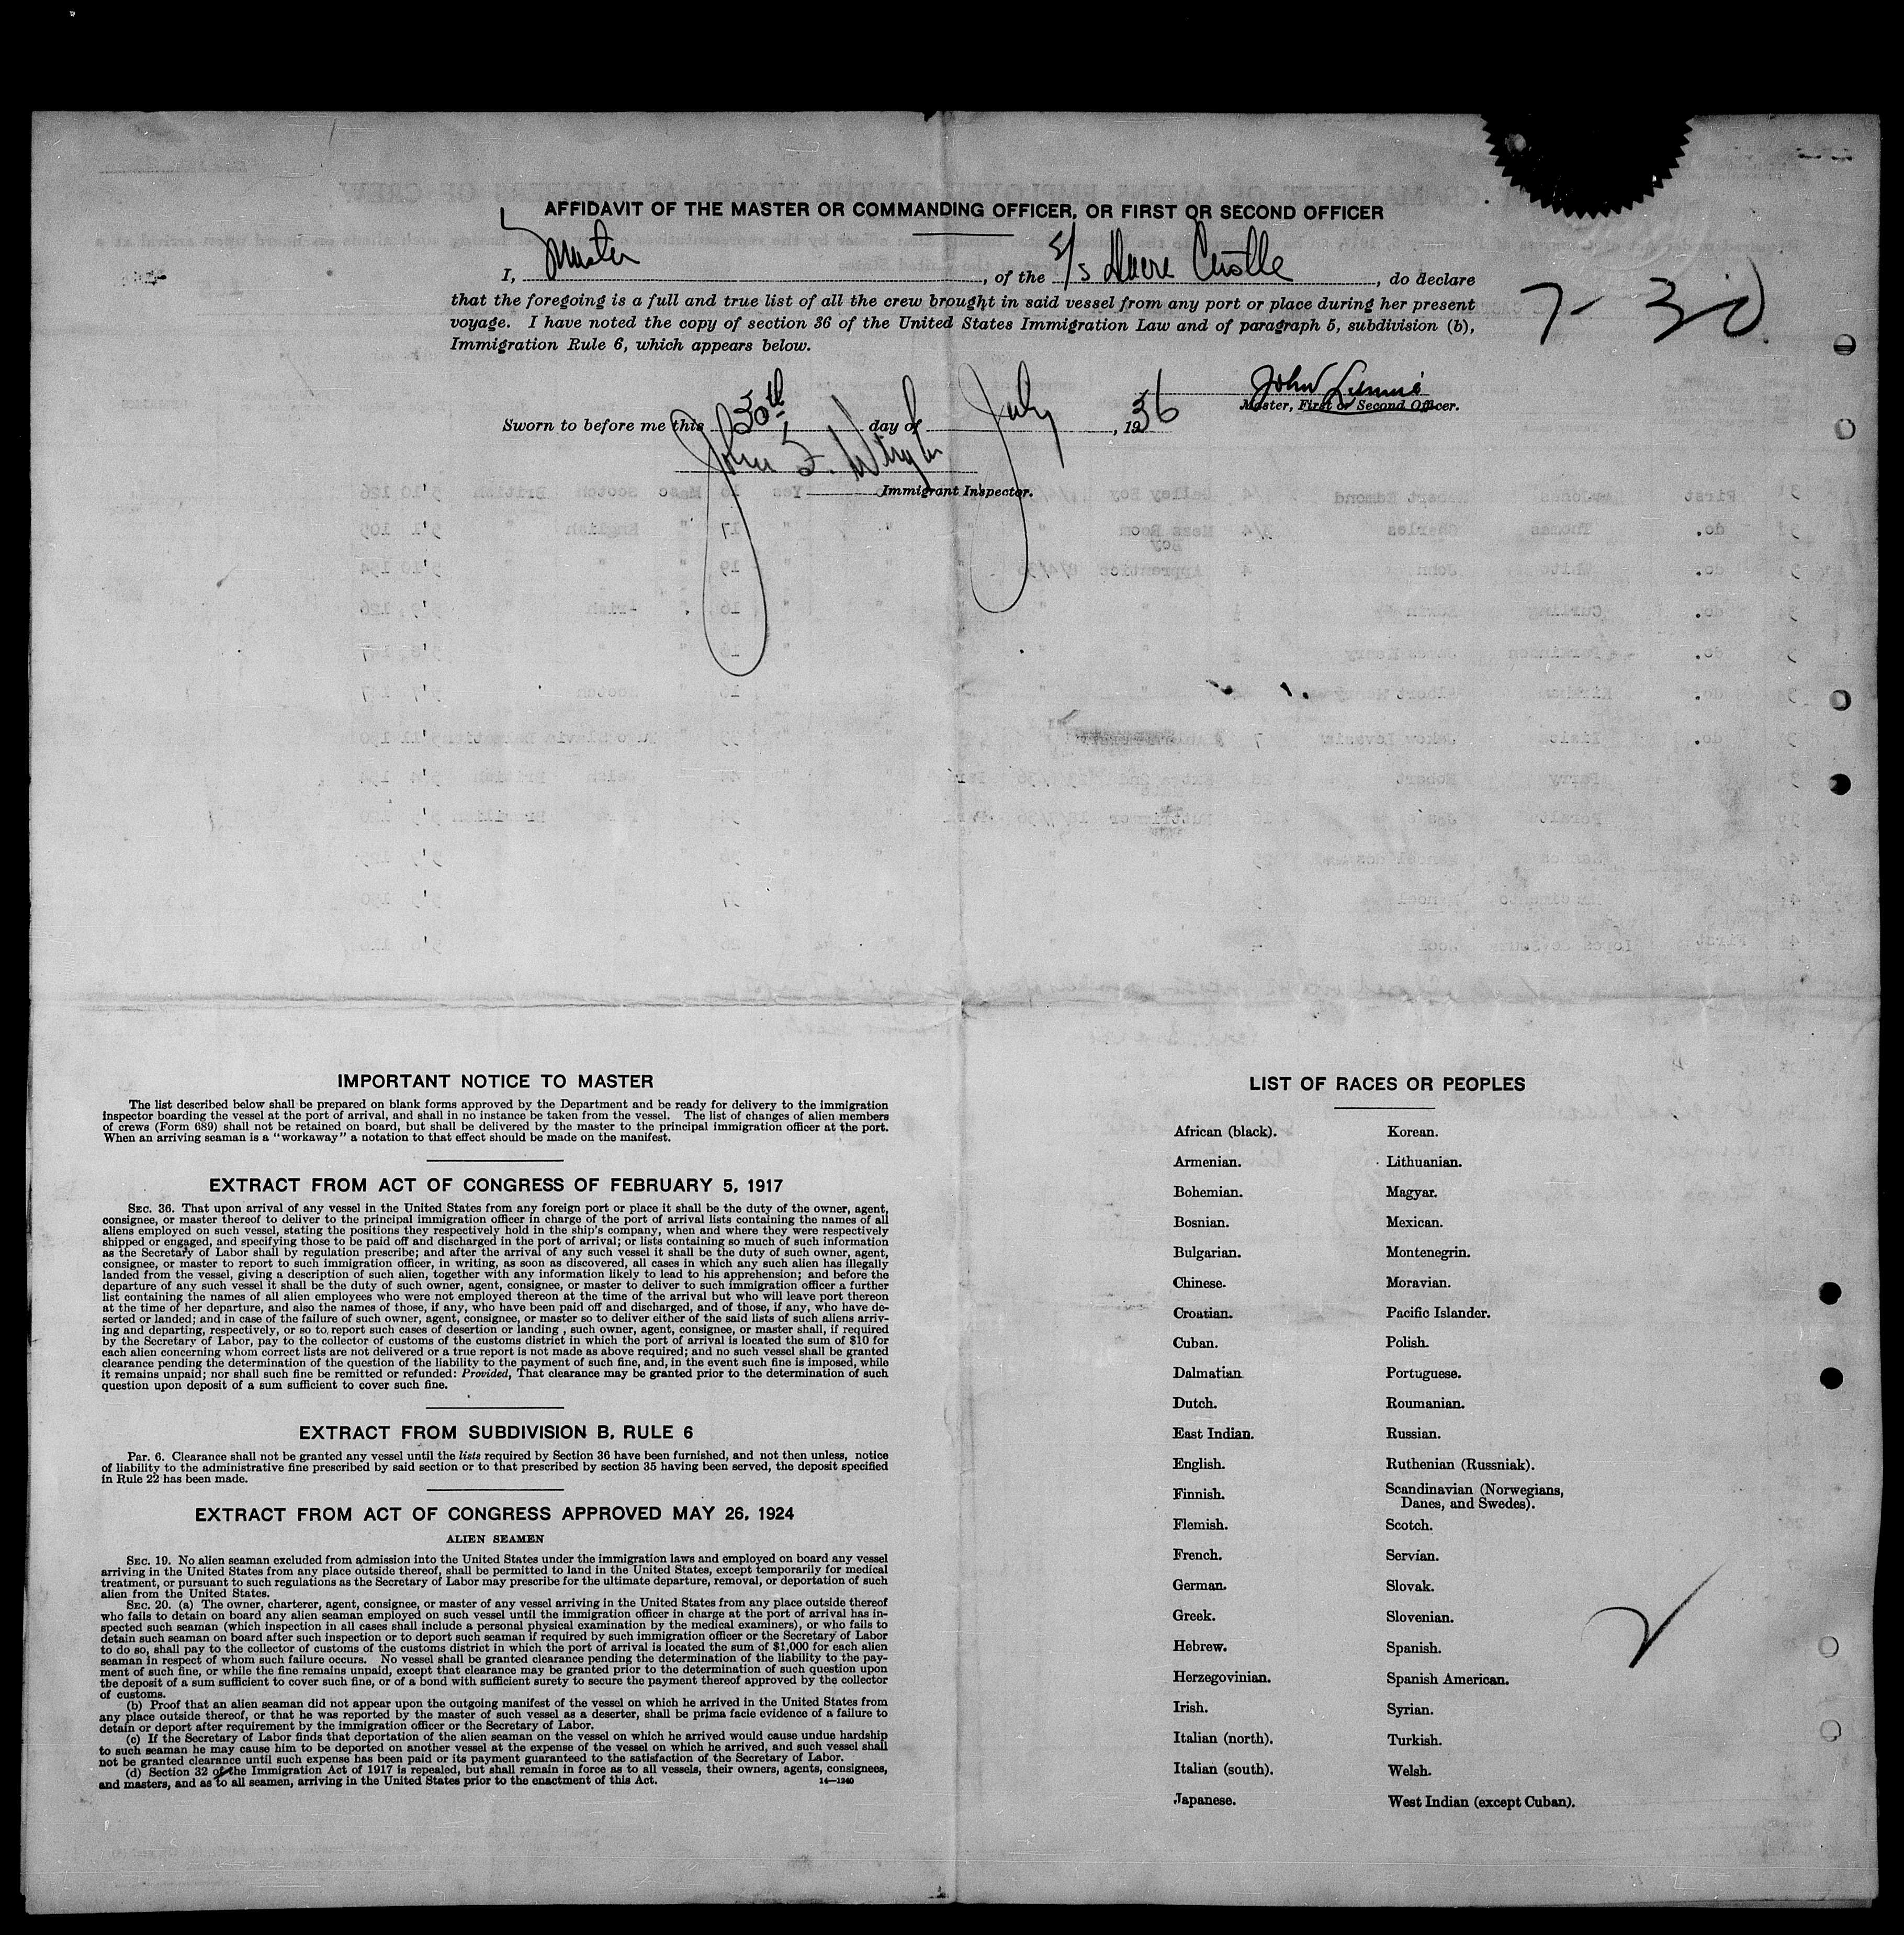 AFFIDAVIT OF THE MASTER OR COMMANDING OFFICER, OR FIRST OR SECOND OFFICER
I, Master, of the S/s Dacre Castle, do declare
that the foregoing is a full and true list of all the crew brought in said vessel from any port or place during her present
voyage. I have noted the copy of section 36 of the United States Immigration Law and of paragraph 5, subdivision (b),
Immigration Rule 6, which appears below.
7-30
John
Master, First or Second Officer.
Sworn to before me this 30th day of July, 1936
John F. Wright
Immigrant Inspector.
IMPORTANT NOTICE TO MASTER
The list described below shall be prepared on blank forms approved by the Department and be ready for delivery to the immigration
inspector boarding the vessel at the port of arrival, and shall in no instance be taken from the vessel. The list of changes of alien members
of crews (Form 689) shall not be retained on board, but shall be delivered by the master to the principal immigration officer at the port.
When an arriving seaman is a "workaway" a notation to that effect should be made on the manifest.
EXTRACT FROM ACT OF CONGRESS OF FEBRUARY 5, 1917
SEC. 36. That upon arrival of any vessel in the United States from any foreign port or place it shall be the duty of the owner, agent,
consignee, or master thereof to deliver to the principal immigration officer in charge of the port of arrival lists containing the names of all
aliens employed on such vessel, stating the positions they respectively hold in the ship's company, when and where they were respectively
shipped or engaged, and specifying those to be paid off and discharged in the port of arrival; or lists containing so much of such information
as the Secretary of Labor shall by regulation prescribe; and after the arrival of any such vessel it shall be the duty of such owner, agent,
consignee, or master to report to such immigration officer, in writing, as soon as discovered, all cases in which any such alien has illegally
landed from the vessel, giving a description of such alien, together with any information likely to lead to his apprehension; and before the
departure of any such vessel it shall be the duty of such owner, agent, consignee, or master to deliver to such immigration officer a further
list containing the names of all alien employees who were not employed thereon at the time of the arrival but who will leave port thereon
at the time of her departure, and also the names of those, if any, who have been paid off and discharged, and of those, if any, who have de-
serted or landed; and in case of the failure of such owner, agent, consignee, or master so to deliver either of the said lists of such aliens arriv-
ing and departing, respectively, or so to report such cases of desertion or landing , such owner, agent, consignee, or master shall, if required
by the Secretary of Labor, pay to the collector of customs of the customs district in which the port of arrival is located the sum of $10 for
each alien concerning whom correct lists are not delivered or a true report is not made as above required; and no such vessel shall be granted
clearance pending the determination of the question of the liability to the payment of such fine, and, in the event such fine is imposed, while
it remains unpaid; nor shall such fine be remitted or refunded: Provided, That clearance may be granted prior to the determination of such
question upon deposit of a sum sufficient to cover such fine.
EXTRACT FROM SUBDIVISION B, RULE 6
Par. 6. Clearance shall not be granted any vessel until the lists required by Section 36 have been furnished, and not then unless, notice
of liability to the administrative fine prescribed by said section or to that prescribed by section 35 having been served, the deposit specified
in Rule 22 has been made.
EXTRACT FROM ACT OF CONGRESS APPROVED MAY 26, 1924
ALIEN SEAMEN
SEC. 19. No alien seaman excluded from admission into the United States under the immigration laws and employed on board any vessel
arriving in the United States from any place outside thereof, shall be permitted to land in the United States, except temporarily for medical
treatment, or pursuant to such regulations as the Secretary of Labor may prescribe for the ultimate departure, removal, or deportation of such
alien from the United States.
SEC. 20. (a) The owner, charterer, agent, consignee, or master of any vessel arriving in the United States from any place outside thereof
who fails to detain on board any alien seaman employed on such vessel until the immigration officer in charge at the port of arrival has in-
spected such seaman (which inspection in all cases shall include a personal physical examination by the medical examiners), or who fails to
detain such seaman on board after such inspection or to deport such seaman if required by such immigration officer or the Secretary of Labor
to do so, shall pay to the collector of customs of the customs district in which the port of arrival is located the sum of $1,000 for each alien
seaman in respect of whom such failure occurs. No vessel shall be granted clearance pending the determination of the liability to the pay-
ment of such fine, or while the fine remains unpaid, except that clearance may be granted prior to the determination of such question upon
the deposit of a sum sufficient to cover such fine, or of a bond with sufficient surety to secure the payment thereof approved by the collector
of customs.
(b) Proof that an alien seaman did not appear upon the outgoing manifest of the vessel on which he arrived in the United States from
any place outside thereof, or that he was reported by the master of such vessel as a deserter, shall be prima facie evidence of a failure to
detain or deport after requirement by the immigration officer or the Secretary of Labor.
(c) If the Secretary of Labor finds that deportation of the alien seaman on the vessel on which he arrived would cause undue hardship
to such seaman he may cause him to be deported on another vessel at the expense of the vessel on which he arrived, and such vessel shall
not be granted clearance until such expense has been paid or its payment guaranteed to the satisfaction of the Secretary of Labor.
(d) Section 32 of the Immigration Act of 1917 is repealed, but shall remain in force as to all vessels, their owners, agents, consignees,
and masters, and as to all seamen, arriving in the United States prior to the enactment of this Act. 14—1240
LIST OF RACES OR PEOPLES
African (black).
Armenian.
Bohemian.
Bosnian.
Bulgarian.
Chinese.
Croatian.
Cuban.
Dalmatian
Dutch.
East Indian.
English.
Finnish.
Flemish.
French.
German.
Greek.
Hebrew.
Herzegovinian.
Irish.
Italian (north).
Italian (south).
Japanese.
Korean.
Lithuanian.
Magyar.
Mexican.
Montenegrin.
Moravian.
Pacific Islander.
Polish.
Portuguese.
Roumanian.
Russian.
Ruthenian (Russniak).
Scandinavian (Norwegians,
Danes, and Swedes).
Scotch.
Servian.
Slovak.
Slovenian.
Spanish.
Spanish American.
Syrian.
Turkish.
Welsh.
West Indian (except Cuban).